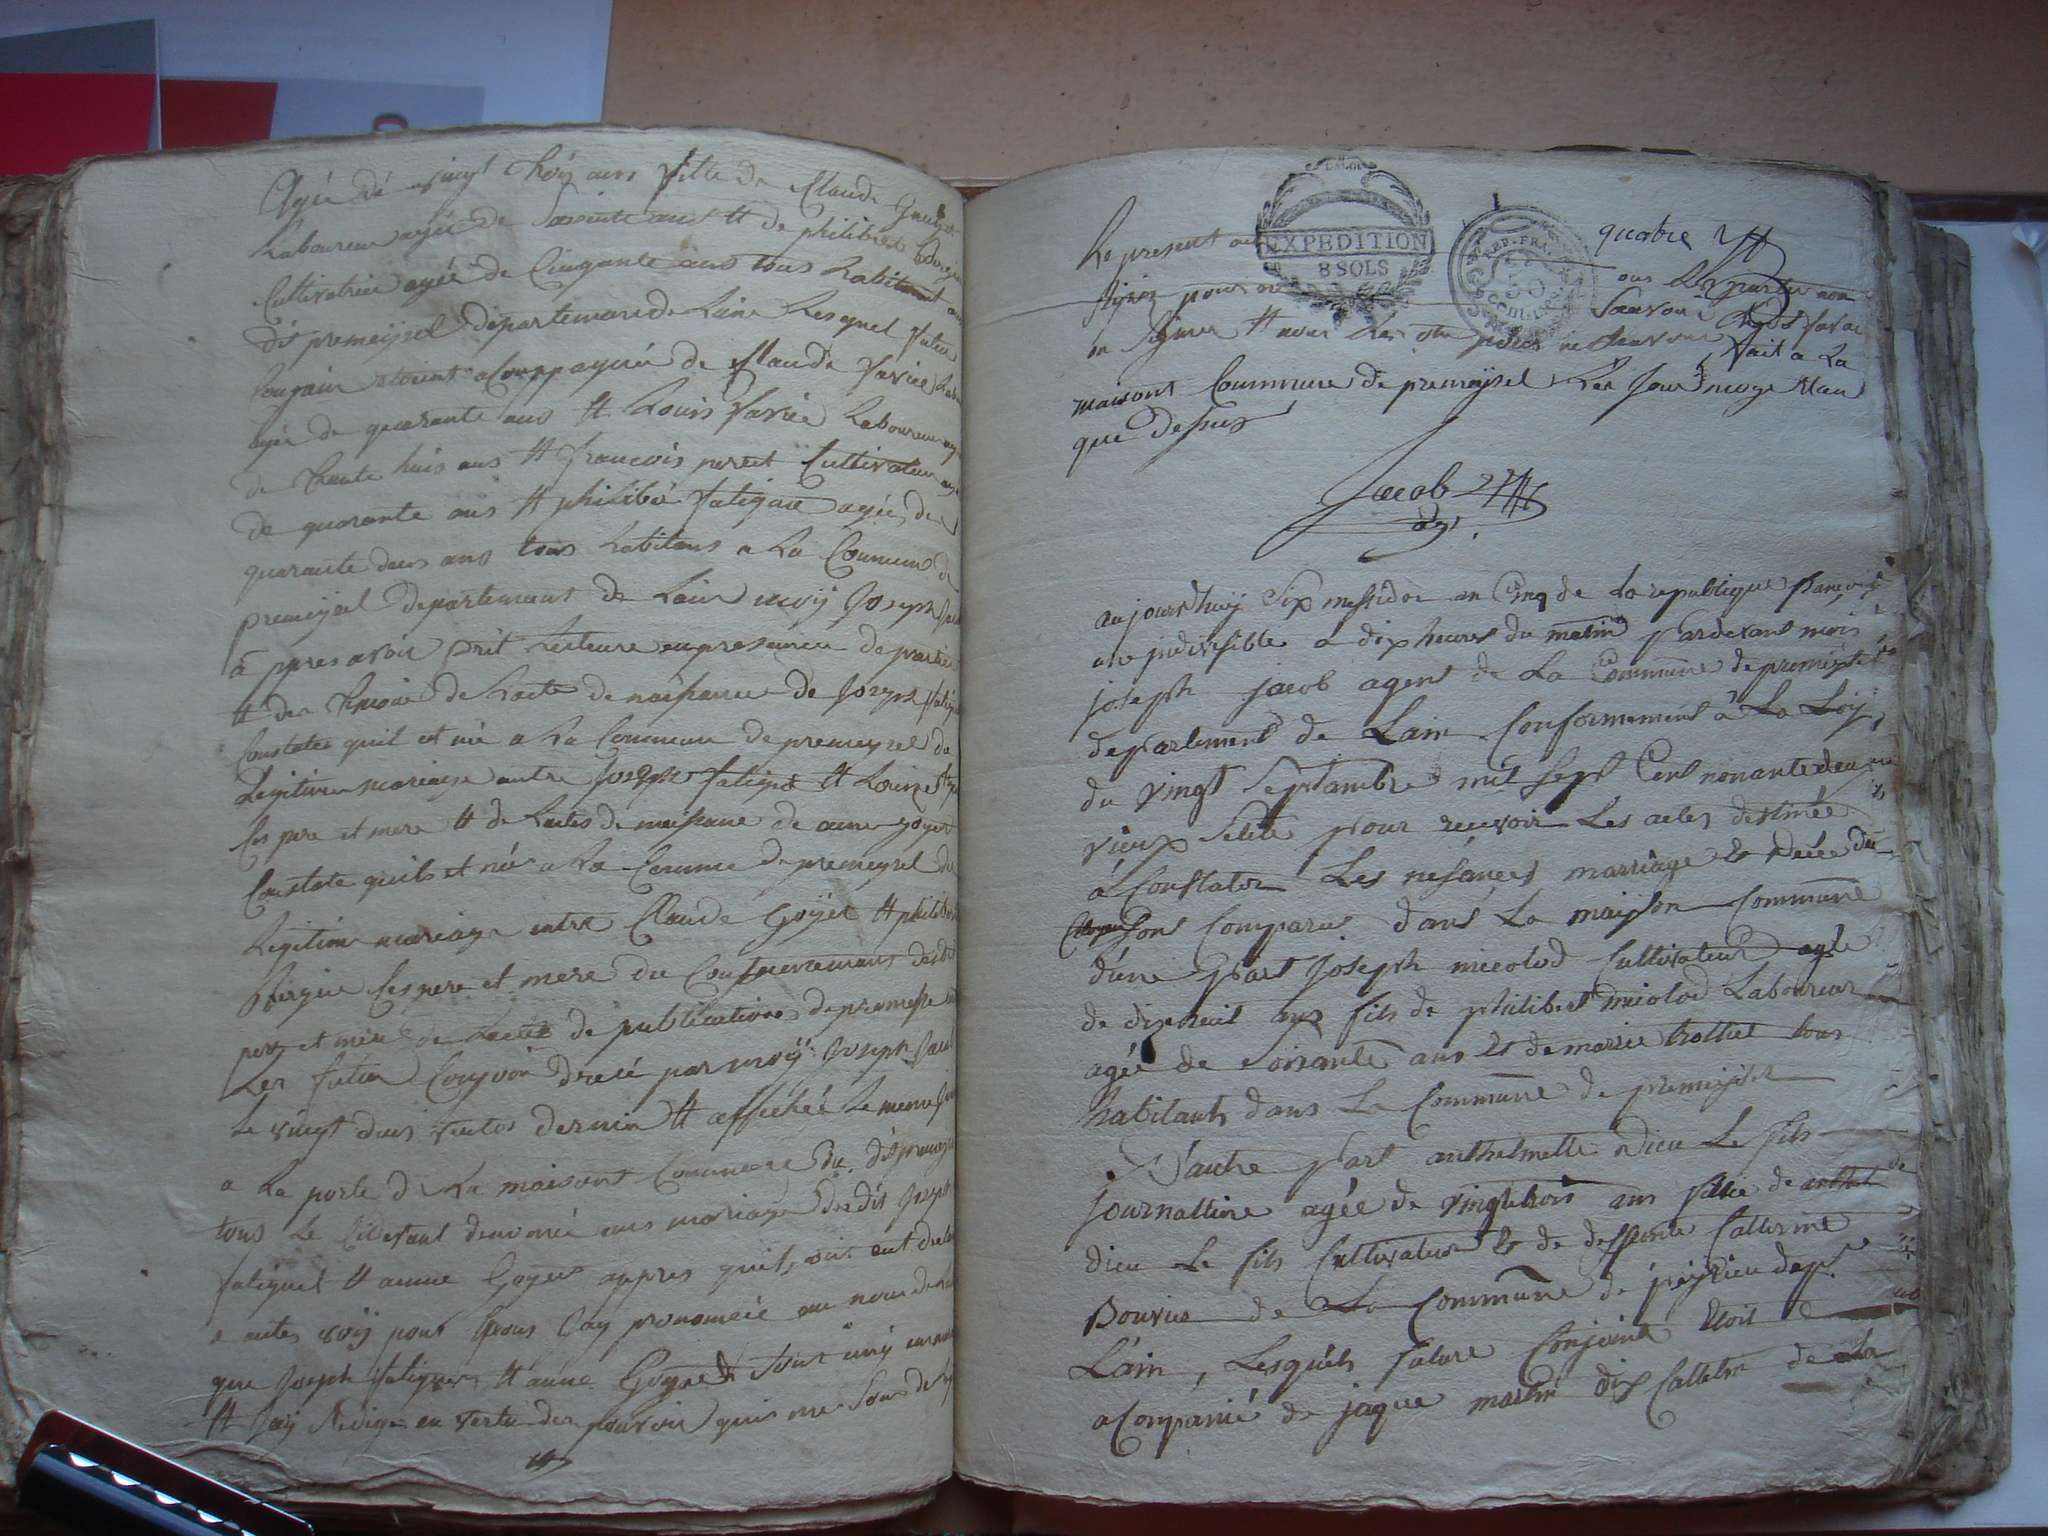 Agée de vingt troij ans fille de Claude
Laboureur agée de Soisente ans tt de philibert
Cultivatrice agée de Cinquante ans tous habitant au
dit premeijsel département de Lain Lesquel futur
Conjoin etoient acomppagnée de Claude Savrie
agée de quarante ans tt Louis Savrie Laboureur
de trante huis ans tt francois peret Cultivateur
de quarante ans tt philibé fatigue agée de
quarante deux ans tous habitans a La Commune de
premeijsel departement de Lain moij Joseph
à ppres avoir prit Lecteure en presence de parties
tt der temoie de Lacte de naissance de Joseph
Constates quil et née a La Commune de premeyzel de
Legitime mariage entre Joseph fatigue tt Louise
Ces pere et mere tt de Lactes de naissance de anne goyet
Constate quils et née a La Commune de premeyzel de
Legitime mariage entre Claude Goyet tt philiberte
ses pere et mere du Consentement desdit
pere et mere de Lacte de publications de promesse
Les futur Conjoin dressé par moij Joseph Jacob
Le vingt deux ventos dernier tt affichée Le meme
a La porte de La maisont Commune du dit
tous Le Cidevant denoncé aus mariage des dit Joseph
fatiguet tt anne Goyet appres quils ont
a autes voij pour Epous Jay prononcée au nom de La
que Joseph fatigue tt anne Goyet Sont unij en
tt Jay Redige en vertu des pouvoir quis me Sont
quatre
Le present acte
EXPEDITION
8 SOLS
REP. FRA.
Signez pour ne Savoir
en Signer tt nous Les
fait a La
maisont Commune de premeijsel Les Jour moij et an
que dessus
Jacob
agt
aujourdhuij Six messidor an Cinq de La republique francoij
une indivisible a dix heures du matin pardevant moij
joseph jacob agent de La Commune de premeijsel
departement de Lain Conformement à La Loij
du vingt Septambre mil Sept Cent nonante deu
pour recevoir Les actes destinée
à Constater Les nesances marriage et décé des
Citoyens Sont Comparus dans La maison Commune
d'une part Joseph micolod Cultivateur agée
de dixneuf ans fils de philibert micolod Laboureur
agée de Soixante ans et de marie trollet tous
habitants dans La Commune de premeijsel
D'autre part anthelmette dieu Le fils
Journalliere agée de vingtetrois ans fille de anthel
dieu Le fils Cultivateur et de deffunte Catterine
Bouvier de La Commune de peijrieu dep.
L'ain, Lesquels future Conjoint Etoit
aCompanié de jaque martin dix Callets de La